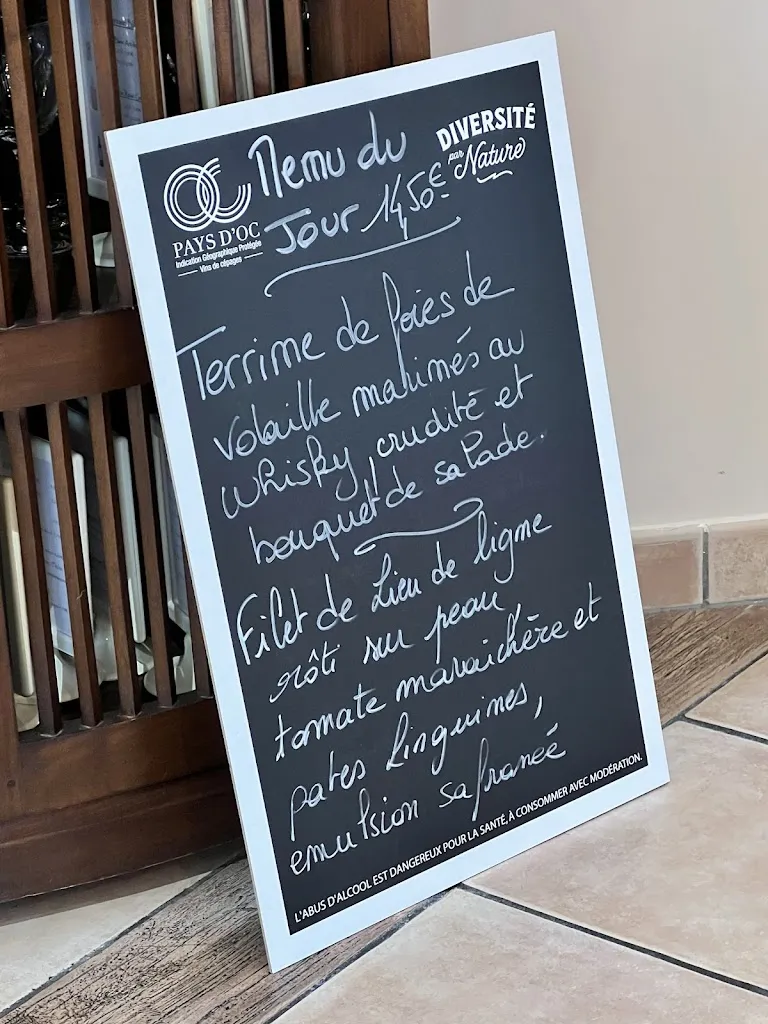 Menu du
Jour 14,50€
DIVERSITÉ
par Nature
PAYS D'OC
Indication Géographique Protégée
Vins de cépages
Terrine de foies de
volaille marinés au
whisky, crudité et
bouquet de salade.
Filet de Lieu de ligne
rôti sur peau,
tomate maraichère et
pates linguines,
emulsion safrané
L'ABUS D'ALCOOL EST DANGEREUX POUR LA SANTÉ, À CONSOMMER AVEC MODÉRATION.